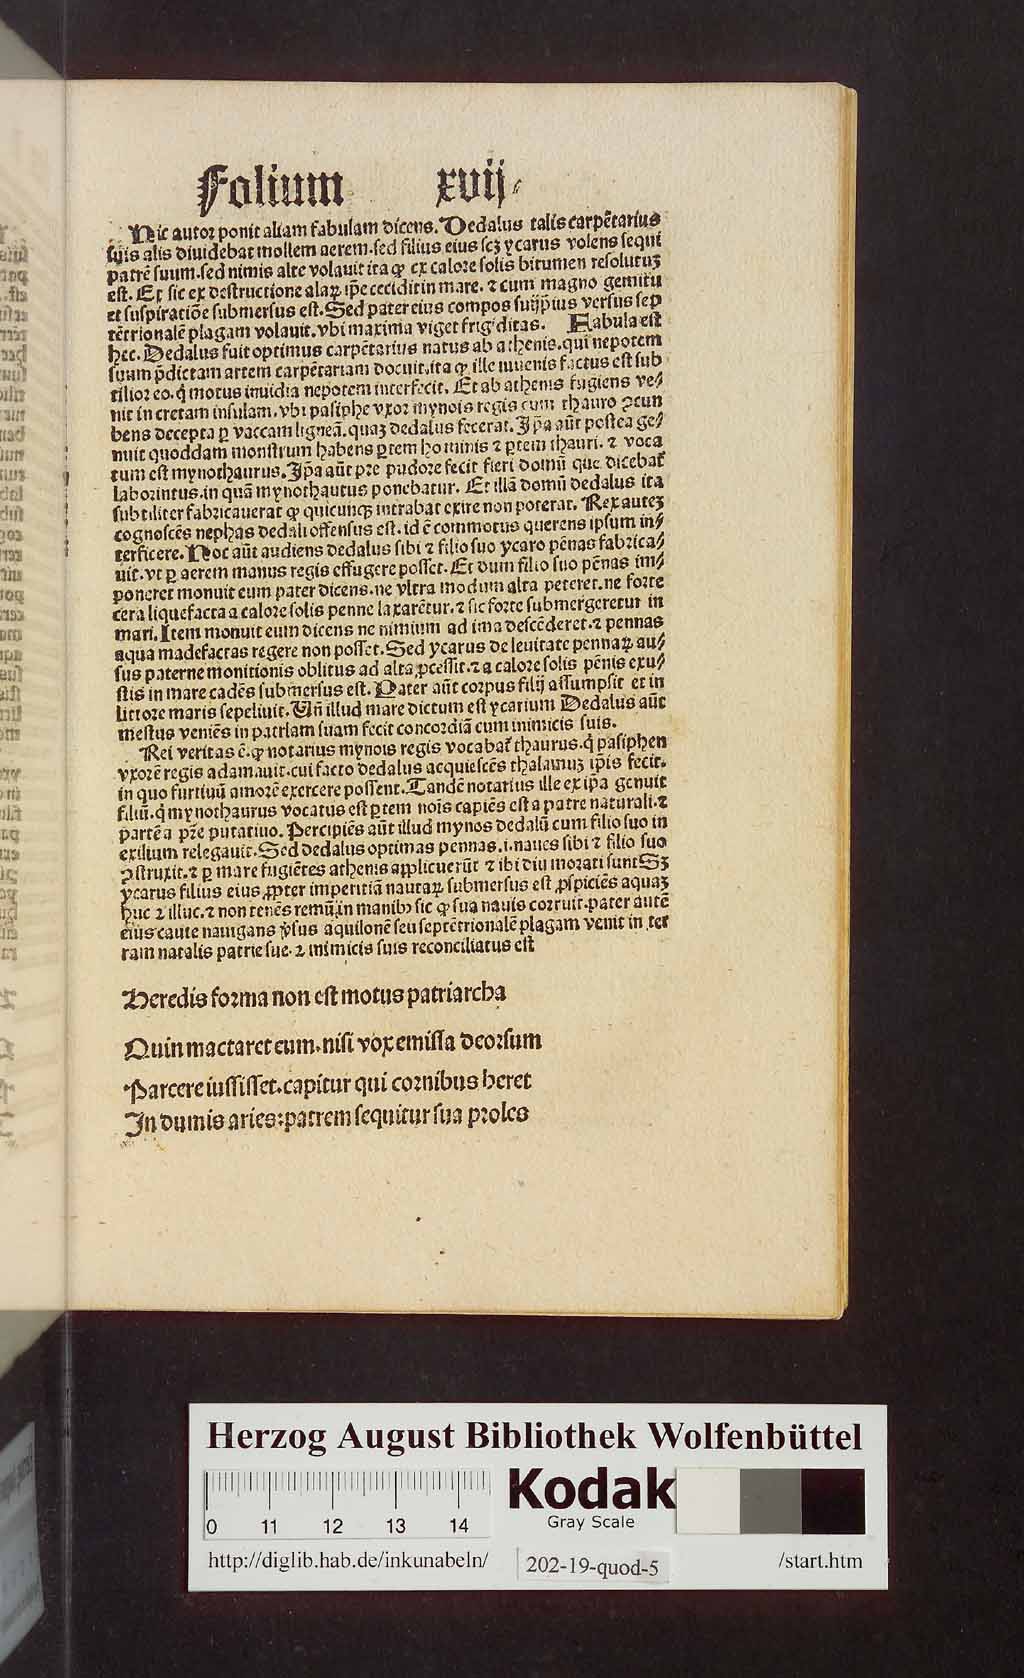 Folium xvij.
Hic autor ponit aliam fabulam dicens. Dedalus talis carpẽtarius
suis alis diuidebat mollem aerem. sed filius eius scꝫ ycarus volens sequi
patrẽ suum. sed nimis alte volauit ita ꝙ ex calore solis bitumen resolutuꝫ
est. Et sic ex destructione alaꝝ ip̃e cecidit in mare. ⁊ cum magno gemitu
et suspiratiõe submersus est. Sed pater eius compos sui ip̃ius versus sep
tẽtrionalẽ plagam volauit. vbi maxima viget frigiditas. Fabula est
hec. Dedalus fuit optimus carpẽtarius natus ab athenis. qui nepotem
suum p̃dictam artem carpẽtariam docuit. ita ꝙ ille iuuenis factus est sub
tilior eo. q̇ motus inuidia nepotem interfecit. Et ab athenis fugiens ve⸗
nit in cretam insulam. vbi pasiphe vxor mynois regis cum thauro ꝯcun
bens decepta ꝑ vaccam ligneã. quaꝫ dedalus fecerat. Ip̃a aũt postea ge⸗
nuit quoddam monstrum habens ꝑtem hominis ⁊ ꝑtem thauri. ⁊ voca
tum est mynothaurus. Ip̃a aũt pre pudore fecit fieri domũ que dicebat᷑
laborintus. in quã mynothautus ponebatur. Et illã domũ dedalus ita
subtiliter fabricauerat ꝙ quicunqꝫ intrabat exire non poterat. Rex auteꝫ
cognoscẽs nephas dedali offensus est. id ẽ commotus querens ipsum in⸗
terficere. Hoc aũt audiens dedalus sibi ⁊ filio suo ycaro pẽnas fabrica⸗
uit. vt ꝑ aerem manus regis effugere posset. Et dum filio suo pẽnas im⸗
poneret monuit eum pater dicens. ne vltra modum alta peteret. ne forte
cera liquefacta a calore solis penne laxarẽtur. ⁊ sic forte submergeretur in
mari. Item monuit eum dicens ne nimium ad ima descẽderet. ⁊ pennas
aqua madefactas regere non posset. Sed ycarus de leuitate pennaꝝ au⸗
sus paterne monitionis oblitus ad alta ꝓcessit. ⁊ a calore solis pẽnis exu⸗
stis in mare cadẽs submersus est. Pater aũt corpus filij assumpsit et in
littore maris sepeliuit. Vñ illud mare dictum est ycarium Dedalus aũt
mestus veniẽs in patriam suam fecit concordiã cum inimicis suis.
Rei veritas ẽ. ꝙ notarius mynois regis vocabat᷑ thaurus. q̇ pasiphen
vxorẽ regis adamauit. cui facto dedalus acquiescẽs thalamuꝫ ip̃is fecit.
in quo furtiuũ amorẽ exercere possent. Tandẽ notarius ille ex ip̃a genuit
filiũ. q̇ mynothaurus vocatus est ꝑtem nois capiẽs est a patre naturali. ⁊
partẽ a pr̃e putatiuo. Percipiẽs aũt illud mynos dedalũ cum filio suo in
exilium relegauit. Sed dedalus optimas pennas. i. naues sibi ⁊ filio suo
ꝯstruxit. ⁊ ꝑ mare fugiẽtes athenis applicuerũt ⁊ ibi diu morati sunt Sꝫ
ycarus filius eius ꝓpter imperitiã nautaꝝ submersus est ꝓspiciẽs aquaꝫ
huc ⁊ illuc. ⁊ non tenẽs remũ in manibꝰ sic ꝙ sua nauis corruit. pater autẽ
eius caute nauigans v̾sus aquilonẽ seu septẽtrionalẽ plagam venit in ter
ram natalis patrie sue. ⁊ inimicis suis reconciliatus est
Heredis forma non est motus patriarcha
Quin mactaret eum. nisi vox emissa deorsum
Parcere iussisset. capitur qui cornibus heret
In dumis aries: patrem sequitur sua proles
Herzog August Bibliothek Wolfenbüttel
Kodak
Gray Scale
0 11 12 13 14
http://diglib.hab.de/inkunabeln/ 202-19-quod-5 /start.htm